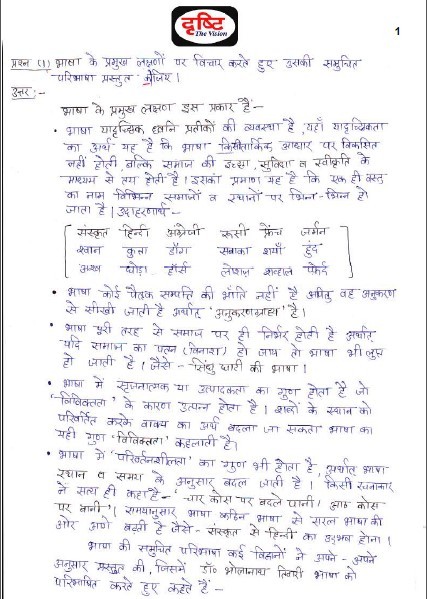 दृष्टि
The Vision
1
प्रश्न (1) भाषा के प्रमुख लक्षणों पर विचार करते हुए उसकी समुचित
परिभाषा प्रस्तुत कीजिए।
उत्तर:-
भाषा के प्रमुख लक्षण इस प्रकार हैं-
• भाषा यादृच्छिक ध्वनि प्रतीकों की व्यवस्था है, यहाँ यादृच्छिकता
का अर्थ यह है कि भाषा किसी तार्किक आधार पर विकसित
नहीं होती, बल्कि समाज की इच्छा, सुविधा व स्वीकृति के
माध्यम से तय होती है। इसका प्रमाण यह है कि एक ही वस्तु
का नाम विभिन्न समाजों व स्थानों पर भिन्न-भिन्न हो
जाता है। उदाहरणार्थ-
संस्कृत हिन्दी अंग्रेजी रूसी फ्रेंच जर्मन
श्वान कुत्ता डॉग सबाका शयाँ हुंद
अश्व घोड़ा हॉर्स लोशज़ शव्हाल फेर्द
• भाषा कोई पैतृक सम्पत्ति की भाँति नहीं है अपितु वह अनुकरण
से सीखी जाती है अर्थात् 'अनुकरणग्राह्य' है।
• भाषा पूरी तरह से समाज पर ही निर्भर होती है अर्थात्
यदि समाज का पतन (विनाश) हो जाए तो भाषा भी लुप्त
हो जाती है। जैसे- सिंधु घाटी की भाषा।
• भाषा में सृजनात्मक या उत्पादकता का गुण होता है जो
'विविक्तता' के कारण उत्पन्न होता है। शब्दों के स्थान को
परिवर्तित करके वाक्य का अर्थ बदला जा सकता भाषा का
यही गुण 'विविक्तता' कहलाती है।
• भाषा में 'परिवर्तनशीलता' का गुण भी होता है, अर्थात भाषा
स्थान व समय के अनुसार बदल जाती है। किसी रचनाकार
ने सत्य ही कहा है- 'चार कोस पर बदले पानी। आठ कोस
पर बानी'। समयानुसार भाषा कठिन भाषा से सरल भाषा की
ओर आगे बढ़ती है जैसे- संस्कृत से हिन्दी का उद्भव होना।
भाषा की समुचित परिभाषा कई विद्वानों ने अपने-अपने
अनुसार प्रस्तुत की, जिसमें डॉ० भोलानाथ तिवारी भाषा को
परिभाषित करते हुए कहते हैं-